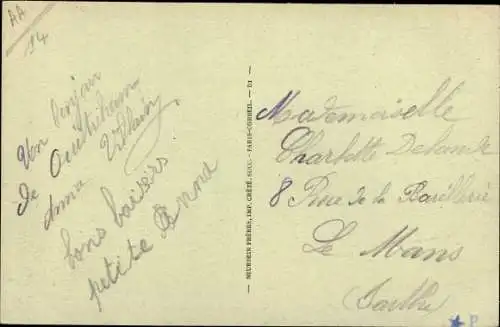 AA
14
Un bonjour
de Ouistreham
Anna
bons baisers
petite Anna
NEURDEIN FRÈRES, IMP. CRÉTÉ, SUCC. - PARIS-CORBEIL - D1
Mademoiselle
Charlotte
8 Rue de la Barillerie
Le Mans
Sarthe
P